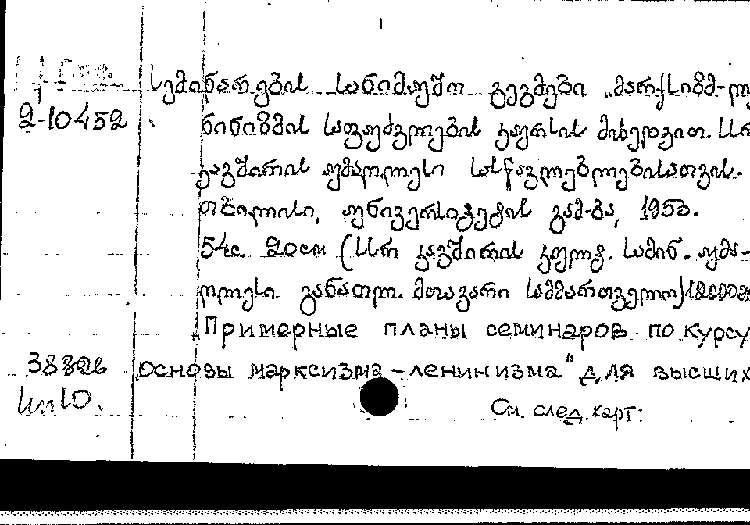 სემინარების სანიმუშო გეგმები „მარქსიზმ-ლე
2-10452
ნინიზმის საფუძვლების კურსის მიხედვით. სსრ
კავშირის უმაღლესი სასწავლებლებისათვის.
თბილისი, უნივერსიტეტის გამ-ბა, 1953.
54с. 20см (სსრ კავშირის კულტ. სამინ. უმა-
ღლესი განათლ. მთავარი სამმართველო)
Примерные планы семинаров по курсу
основы марксизма-ленинизма" для высших
См. след. карт: